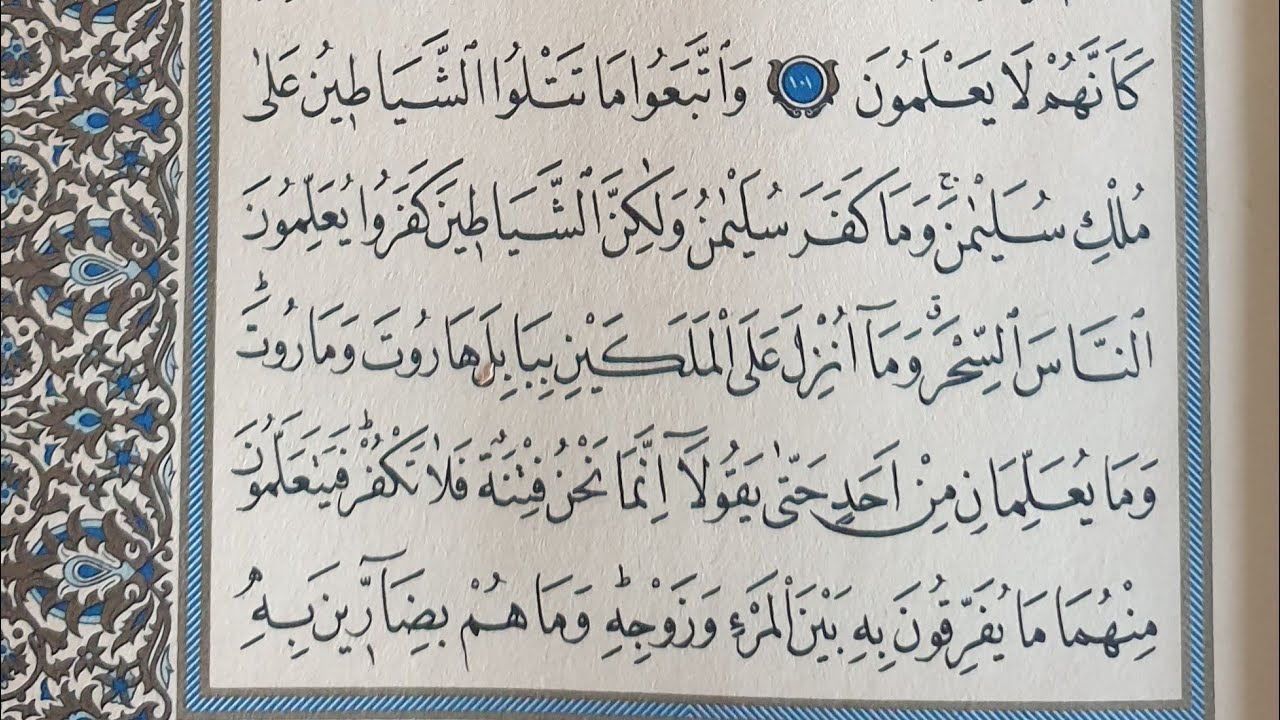 كَاَنَّهُمْ لَا يَعْلَمُونَ ١٠١ وَاتَّبَعُوا مَا تَتْلُوا الشَّيَاطِينُ عَلٰى
مُلْكِ سُلَيْمٰنَۚ وَمَا كَفَرَ سُلَيْمٰنُ وَلٰكِنَّ الشَّيَاطِينَ كَفَرُوا يُعَلِّمُونَ
النَّاسَ السِّحْرَۗ وَمَٓا اُنْزِلَ عَلَى الْمَلَكَيْنِ بِبَابِلَ هَارُوتَ وَمَارُوتَۜ
وَمَا يُعَلِّمَانِ مِنْ اَحَدٍ حَتّٰى يَقُولَٓا اِنَّمَا نَحْنُ فِتْنَةٌ فَلَا تَكْفُرْۜ فَيَتَعَلَّمُونَ
مِنْهُمَا مَا يُفَرِّقُونَ بِهِ بَيْنَ الْمَرْءِ وَزَوْجِهِۜ وَمَا هُمْ بِضَٓارِّينَ بِهِ